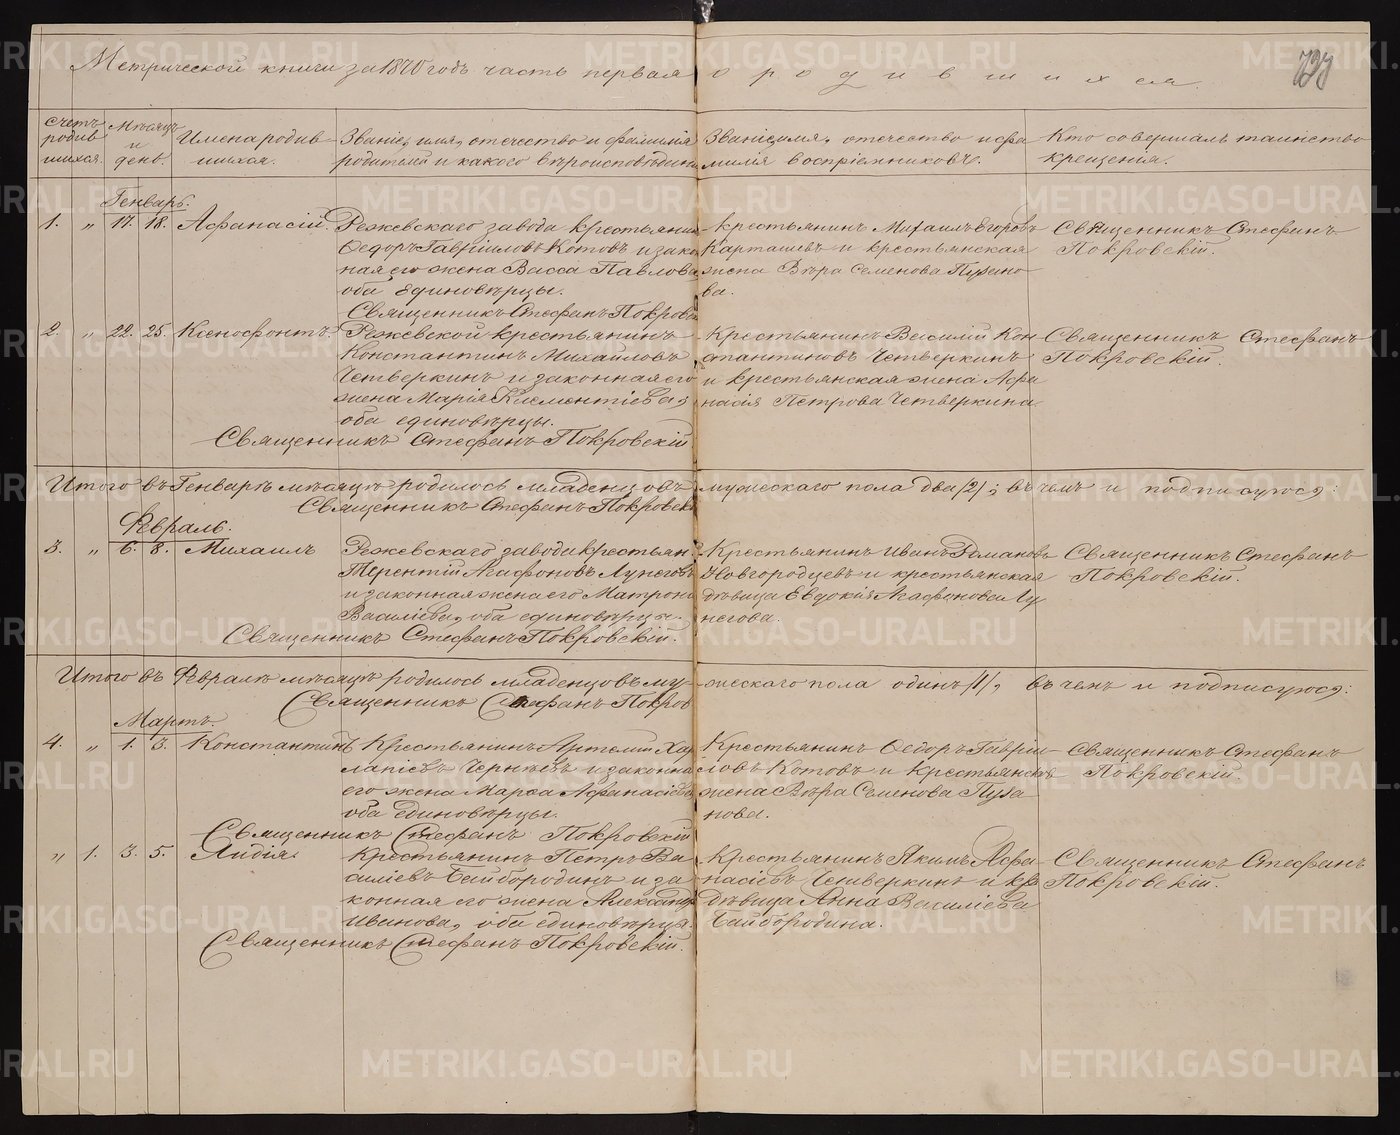 Метрической книги за 1870 годъ часть первая о родившихся.
Счетъ родившихся.
Мѣсяцъ и день.
Имена родившихся.
Званіе, имя, отчество и фамилія
родителей и какого вѣроисповѣданія
Званіе, имя, отчество и фа
милія воспріемниковъ.
Кто совершалъ таинство
крещенія.
Генварь.
1. " 17. 18. Афанасій.
Режевскаго завода крестьянинъ
Ѳедоръ Гавріиловъ Котовъ и зако
ная его жена Васса Павлова
оба единовѣрцы.
Священникъ Стефанъ Покровскій
Крестьянинъ Михаилъ Егоровъ
Карташевъ и крестьянская
жена Вѣра Семенова Пузано
ва.
Священникъ Стефанъ
Покровскій.
2. " 22. 25. Ксенофонтъ.
Режевской крестьянинъ
Константинъ Михайловъ
Четверкинъ и законная его
жена Марія Климентіева,
оба единовѣрцы.
Священникъ Стефанъ Покровскій
Крестьянинъ Василій Кон
стантиновъ Четверкинъ
и крестьянская жена Афа
насія Петрова Четверкина
Священникъ Стефанъ
Покровскій.
Итого въ Генварѣ мѣсяцѣ родилось младенцовъ мужескаго пола два /2/; въ чемъ и подписуюсь:
Священникъ Стефанъ Покровскій
Февраль.
3. " 6. 8. Михаилъ
Режевскаго завода крестьян
Терентій Агафоновъ Лунеговъ
и законная жена его Матрона
Василіева, оба единовѣрцы.
Священникъ Стефанъ Покровскій.
Крестьянинъ Иванъ Романовъ
Новгородцевъ и крестьянская
дѣвица Евдокія Агафонова Лу
негова.
Священникъ Стефанъ
Покровскій.
Итого въ Февралѣ мѣсяцѣ родилось младенцовъ му-жескаго пола одинъ /1/, въ чемъ и подписуюсь:
Священникъ Стефанъ Покров
Мартъ.
4. " 1. 3. Константинъ
Крестьянинъ Артемій Хар
лапіевъ Чернѣевъ и законна
его жена Марѳа Афанасіева
оба единовѣрцы.
Священникъ Стефанъ Покровскій
Крестьянинъ Ѳедоръ Гавріи-
ловъ Котовъ и крестьянскъ
жена Вѣра Семенова Пуза
нова.
Священникъ Стефанъ
Покровскій.
" 1. 3. 5. Лидія.
Крестьянинъ Петръ Ва
силіевъ Байбородинъ и за
конная его жена Александр
Иванова, оба единовѣрцы.
Священникъ Стефанъ Покровскій.
Крестьянинъ Якимъ Афа-
насіевъ Четверкинъ и кр
дѣвица Анна Василіева
Байбородина.
Священникъ Стефанъ
Покровскій.
METRIKI.GASO-URAL.RU